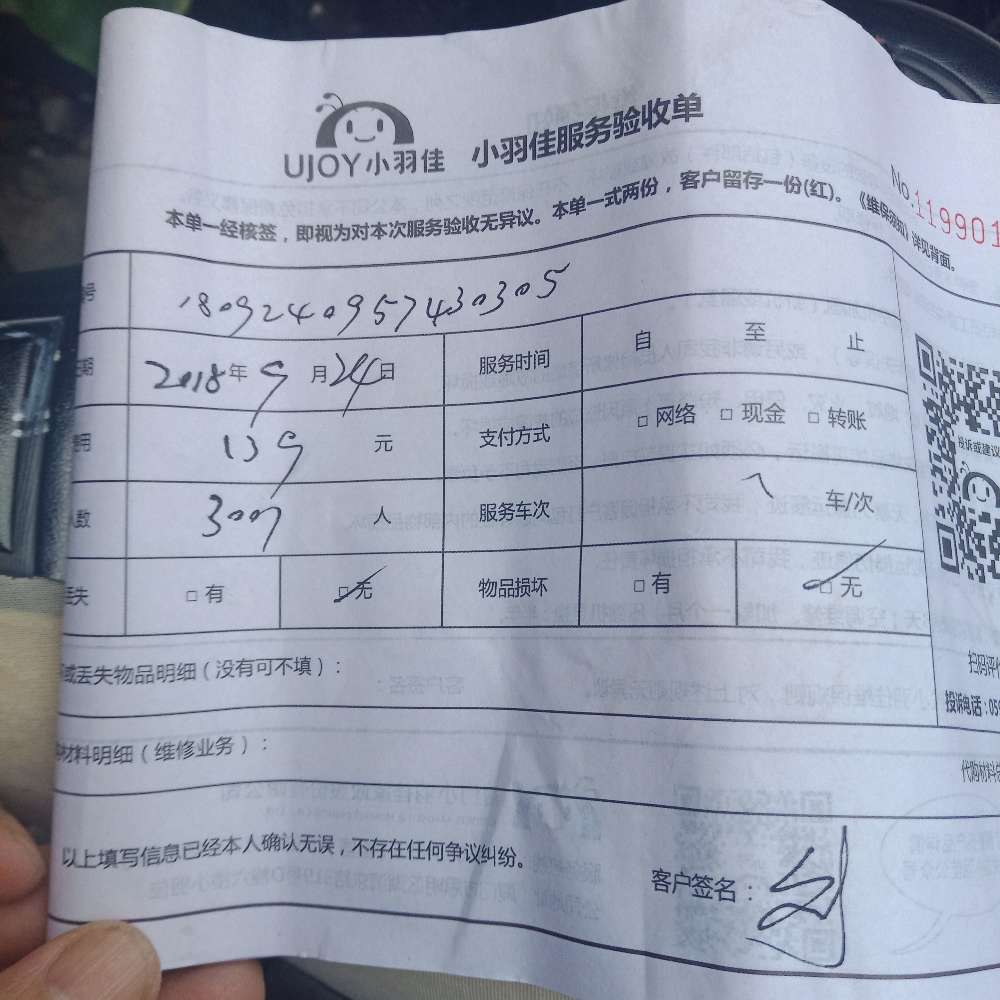 UJOY小羽佳 小羽佳服务验收单
No.119901
本单一经核签，即视为对本次服务验收无异议。本单一式两份，客户留存一份(红)。《维保须知》详见背面。
号 180924095743030​5
期 2018年9月24日 服务时间 自 至 止
用 139 元 支付方式 □网络 □现金 □转账
人数 人 服务车次 车/次
丢失 □有 □无 物品损坏 □有 □无
投诉或建议
或丢失物品明细（没有可不填）：
扫码评价
投诉电话：059
材料明细（维修业务）：
代购材料
以上填写信息已经本人确认无误，不存在任何争议纠纷。
客户签名：